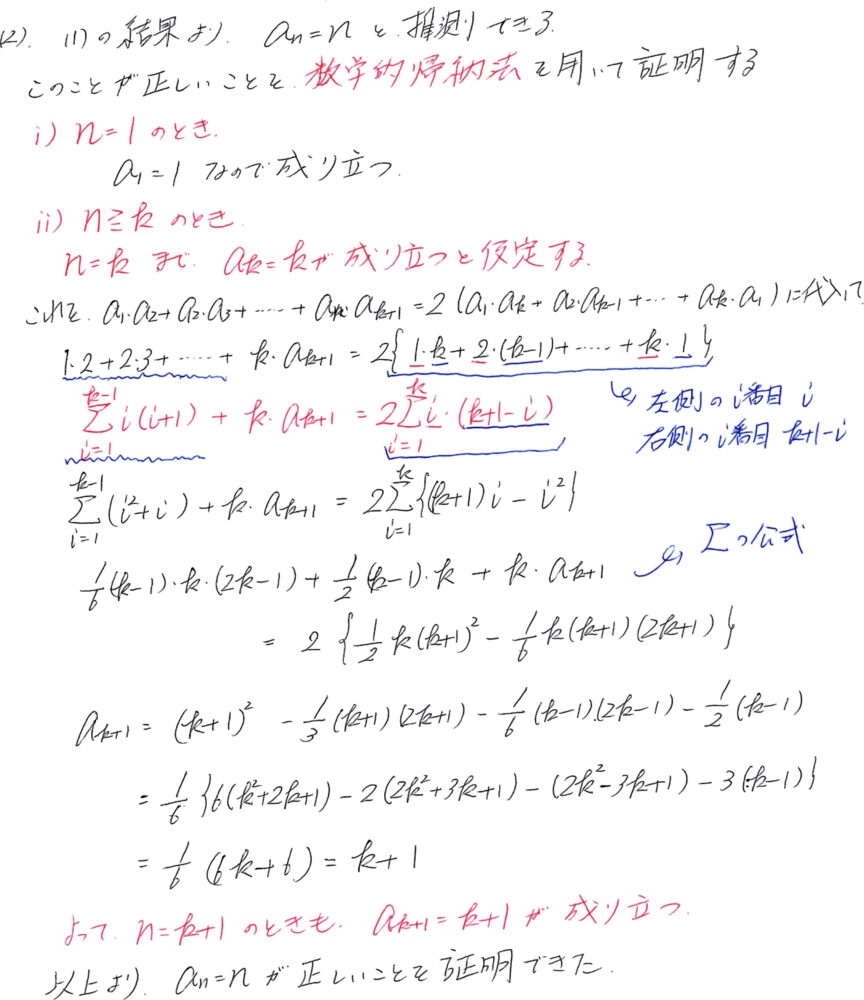 (2). (1)の結果より. aₙ=n と推測できる.
このことが正しいことを. 数学的帰納法を用いて証明する
i) n=1 のとき.
a₁=1 なので成り立つ.
ii) n≧k のとき.
n=k まで. aₖ=k が成り立つと仮定する.
これを. a₁·a₂+a₂·a₃+……+aₖ·aₖ₊₁=2(a₁·aₖ+a₂·aₖ₋₁+…+aₖ·a₁)に代入して
1·2+2·3+……+ k·aₖ₊₁ = 2{1·k+2·(k-1)+……+k·1}
∑_{i=1}^{k-1} i(i+1) + k·aₖ₊₁ = 2∑_{i=1}^{k} i·(k+1-i)
左側のi番目 i
右側のi番目 k+1-i
∑_{i=1}^{k-1} (i²+i) + k·aₖ₊₁ = 2∑_{i=1}^{k} {(k+1)i - i²}
∑の公式
1/6(k-1)·k·(2k-1) + 1/2(k-1)·k + k·aₖ₊₁
= 2 {1/2 k(k+1)² - 1/6 k(k+1)(2k+1)}
aₖ₊₁ = (k+1)² - 1/3(k+1)(2k+1) - 1/6(k-1)(2k-1) - 1/2(k-1)
= 1/6 {6(k²+2k+1) - 2(2k²+3k+1) - (2k²-3k+1) - 3(k-1)}
= 1/6 (6k+6) = k+1
よって. n=k+1 のときも. aₖ₊₁=k+1 が 成り立つ.
以上より. aₙ=n が正しいことを証明できた.